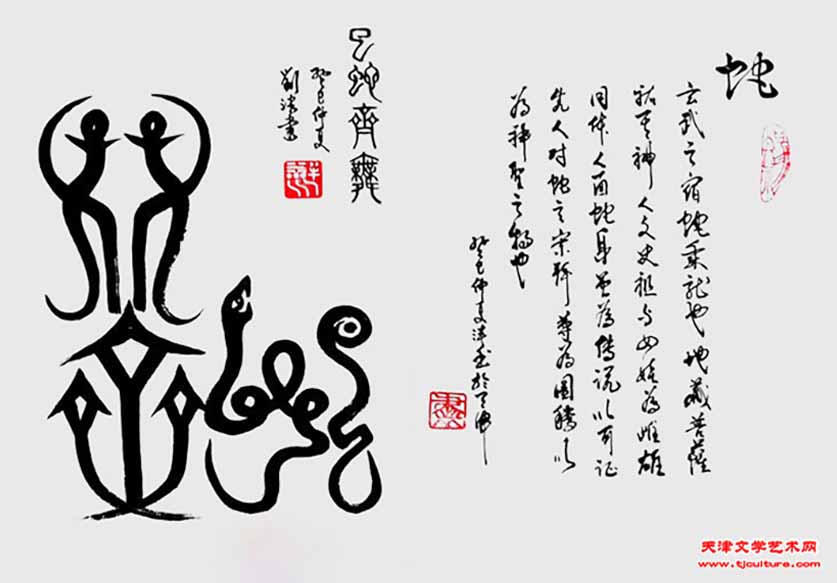 蛇
玄武之宿蛇乘龙也地藏菩萨
神人文史祖与女娲为雌雄
同体人面蛇身曾为传说以可证
先人对蛇之宗拜尊为图腾以
为神圣之物也
癸巳仲夏 书于
蛇齐舞
癸巳仲夏
书
天津文学艺术网
www.tjculture.com